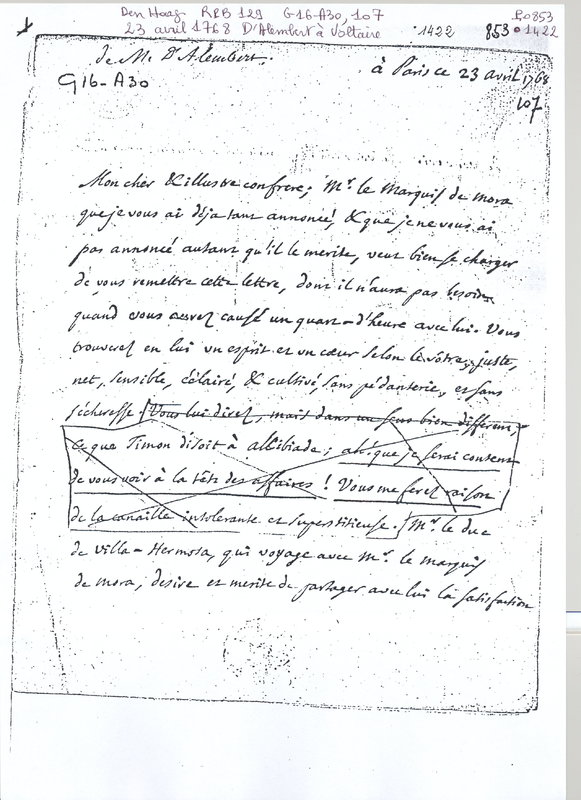 Den Haag RPB 129 G16-A30, 107
23 avril 1768 D'Alembert à Voltaire
1422
853 • 1422
P.0853
de M. D'Alembert.
à Paris ce 23 avril 1768
G16-A30
107
Mon cher & illustre confrere; Mr. le Marquis de mora
que je vous ai déja tant annoncé, & que je ne vous ai
pas annoncé autant qu'il le merite, veut bien se charger
de vous remettre cette lettre, dont il n'aura pas besoin
quand vous aurez causé un quart-d'heure avec lui. Vous
trouverez en lui un esprit et un cœur selon le vôtre, juste,
net, sensible, éclairé, & cultivé, sans pédanterie, et sans
sécheresse. Vous lui direz, mais dans un sens bien différent,
ce que Timon disoit à alcibiade; ah! que je serai content
de vous voir à la tête des affaires! Vous me ferez raison
de la canaille intolerante et superstitieuse. Mr. le duc
de villa-Hermosa, qui voyage avec Mr. le marquis
de mora, desire et merite de partager avec lui la satisfaction